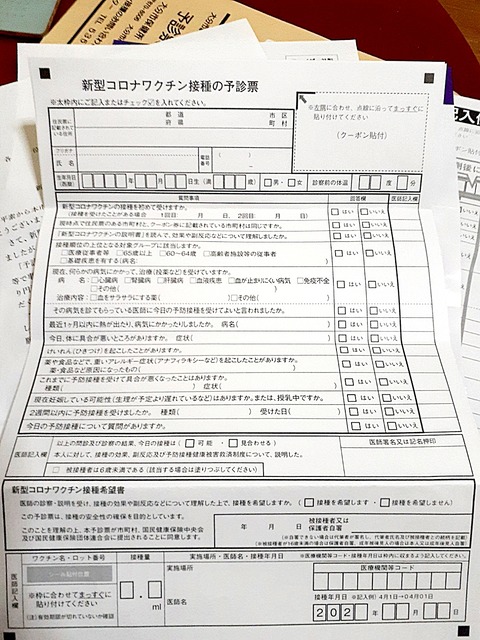 新型コロナワクチン接種の予診票
※太枠内にご記入またはチェック☑を入れてください。
住民票に記載されている住所
都道府県
市区町村
フリガナ
氏名
電話番号
※左隅に合わせ、点線に沿ってまっすぐに貼り付けてください
(クーポン貼付)
生年月日(西暦) 年 月 日生(満 歳) □男・□女 診察前の体温 度 分
質問事項 回答欄 医師記入欄
新型コロナワクチンの接種を初めて受けますか。
(接種を受けたことがある場合 1回目: 月 日、2回目: 月 日) □はい □いいえ
現時点で住民票のある市町村と、クーポン券に記載されている市町村は同じですか。 □はい □いいえ
『新型コロナワクチンの説明書』を読んで、効果や副反応などについて理解しましたか。 □はい □いいえ
接種順位の上位となる対象グループに該当しますか。
□医療従事者等 □65歳以上 □60~64歳 □高齢者施設等の従事者
□基礎疾患を有する(病名: ) □はい □いいえ
現在、何らかの病気にかかって、治療(投薬など)を受けていますか。
病名:□心臓病 □腎臓病 □肝臓病 □血液疾患 □血が止まりにくい病気 □免疫不全
□その他( )
治療内容:□血をサラサラにする薬( ) □その他( ) □はい □いいえ
その病気を診てもらっている医師に今日の予防接種を受けてよいと言われましたか。 □はい □いいえ
最近1ヶ月以内に熱が出たり、病気にかかったりしましたか。 病名( ) □はい □いいえ
今日、体に具合が悪いところがありますか。 症状( ) □はい □いいえ
けいれん(ひきつけ)を起こしたことがありますか。 □はい □いいえ
薬や食品などで、重いアレルギー症状(アナフィラキシーなど)を起こしたことがありますか。
薬・食品など原因になったもの( ) □はい □いいえ
これまでに予防接種を受けて具合が悪くなったことはありますか。
種類( ) 症状( ) □はい □いいえ
現在妊娠している可能性(生理が予定より遅れているなど)はありますか。または、授乳中ですか。 □はい □いいえ
2週間以内に予防接種を受けましたか。 種類( ) 受けた日( ) □はい □いいえ
今日の予防接種について質問がありますか。 □はい □いいえ
医師記入欄
以上の問診及び診察の結果、今日の接種は(□可能・□見合わせる)
本人に対して、接種の効果、副反応及び予防接種健康被害救済制度について、説明した。
□ 被接種者は6歳未満である(該当する場合は塗りつぶしてください)
医師署名又は記名押印
新型コロナワクチン接種希望書
医師の診察・説明を受け、接種の効果や副反応などについて理解した上で、接種を希望しますか。(□接種を希望します・□接種を希望しません)
この予診票は、接種の安全性の確保を目的としています。
このことを理解の上、本予診票が市町村、国民健康保険中央会及び国民健康保険団体連合会に提出されることに同意します。
年 月 日 被接種者又は保護者自署
医師記入欄
ワクチン名・ロット番号
接種量
実施場所・医師名・接種年月日
シール貼付位置
※枠に合わせてまっすぐに貼り付けてください
(注)有効期限が切れていないか確認
ml
実施場所
医師名
※医療機関等コード・接種年月日は枠内に収まるよう記入してください。
医療機関等コード
接種年月日 ※記入例)4月1日→04月01日
202 年 月 日